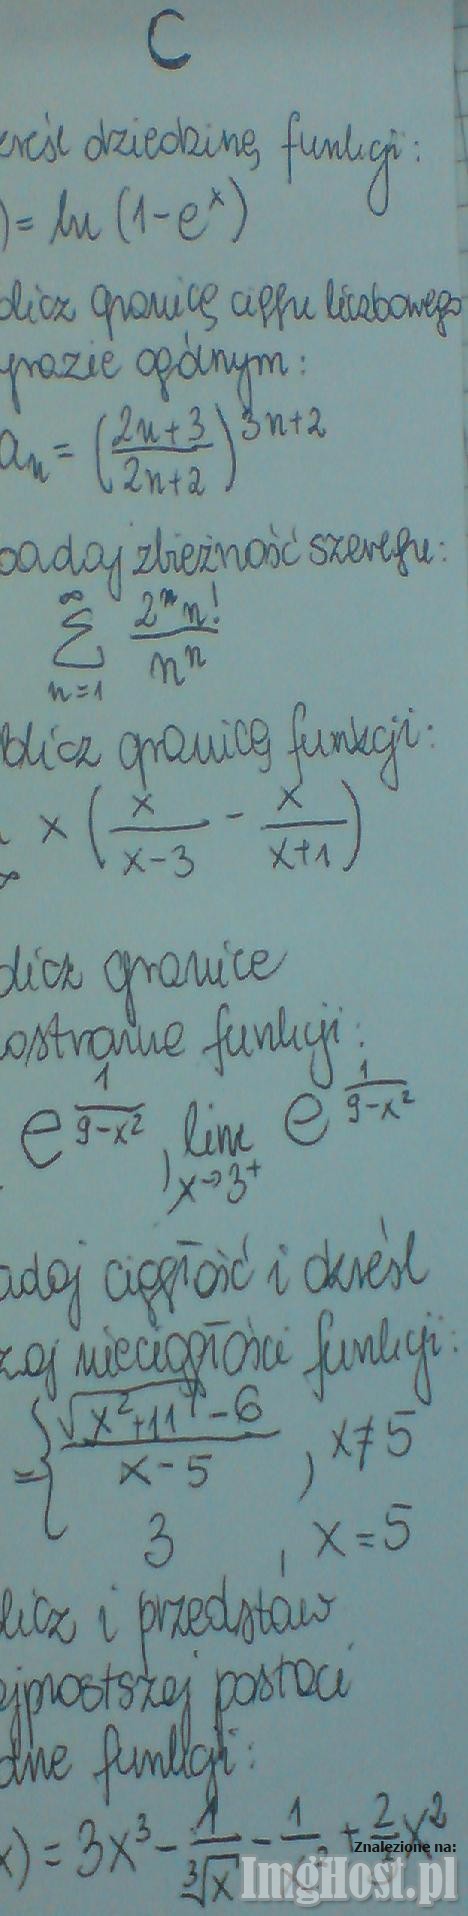 C
kreśl dziedzinę funkcji:
) = ln (1-e^x)
blicz granicę ciągu liczbowego
yrazie ogólnym:
a_n = (\frac{2n+3}{2n+2})^{3n+2}
badaj zbieżność szeregu:
\sum_{n=1}^{∞} \frac{2^n n!}{n^n}
blicz granicę funkcji:
x (\frac{x}{x-3} - \frac{x}{x+1})
∞
blicz granice
ostronne funkcji:
e^{\frac{1}{9-x^2}}, lim_{x→3^+} e^{\frac{1}{9-x^2}}
adaj ciągłość i określ
zaj nieciągłości funkcji:
= { \frac{\sqrt{x^2+11}-6}{x-5}, x≠5
3, x=5
licz i przedstaw
ajprostszej postaci
odne funkcji:
x) = 3x^3 - \frac{1}{\sqrt[3]{x}} -
Znalezione na:
ImgHost.pl